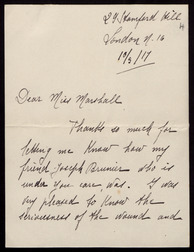 29 Stamford Hill
London N. 16
19/3/17
Dear Miss Marshall
Thanks so much for
letting me know how my
friend Joseph Brunier who is
under your care, was. I was
very pleased to know the
seriousness of the wound and